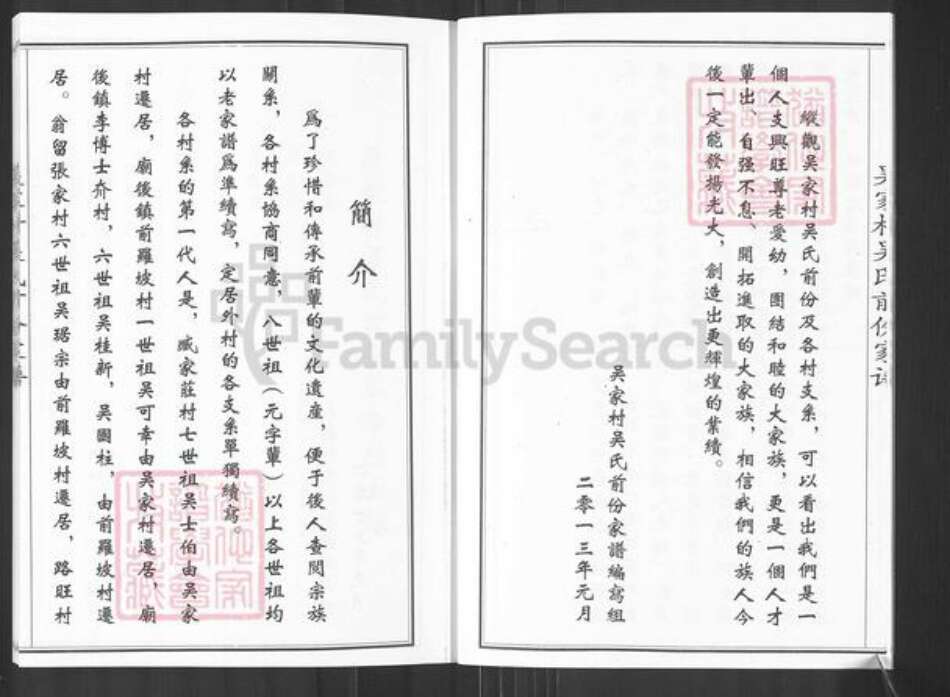 吴家村吴氏前份家谱
縱觀吴家村吴氏前份及各村支系，可以看出我們是一
個人支興旺尊老愛幼，團結和睦的大家族，更是一個人才
輩出、自强不息、開拓進取的大家族，相信我們的族人今
後一定能發揚光大，創造出更輝煌的業績。
吴家村吴氏前份家譜編寫組
二零一三年元月
簡介
爲了珍惜和傳承前輩的文化遺産，便于後人查閲宗族
關系，各村系協商同意，八世祖（元字輩）以上各世祖均
以老家譜爲準續寫，定居外村的各支系單獨續寫。
各村系的第一代人是，臧家莊村七世祖吴士伯由吴家
村遷居，廟後鎮前羅坡村一世祖吴可幸由吴家村遷居，廟
後鎮李博士夼村，六世祖吴桂新，吴國柱，由前羅坡村遷
居。翁留張家村六世祖吴琚宗由前羅坡村遷居，路旺村
FamilySearch